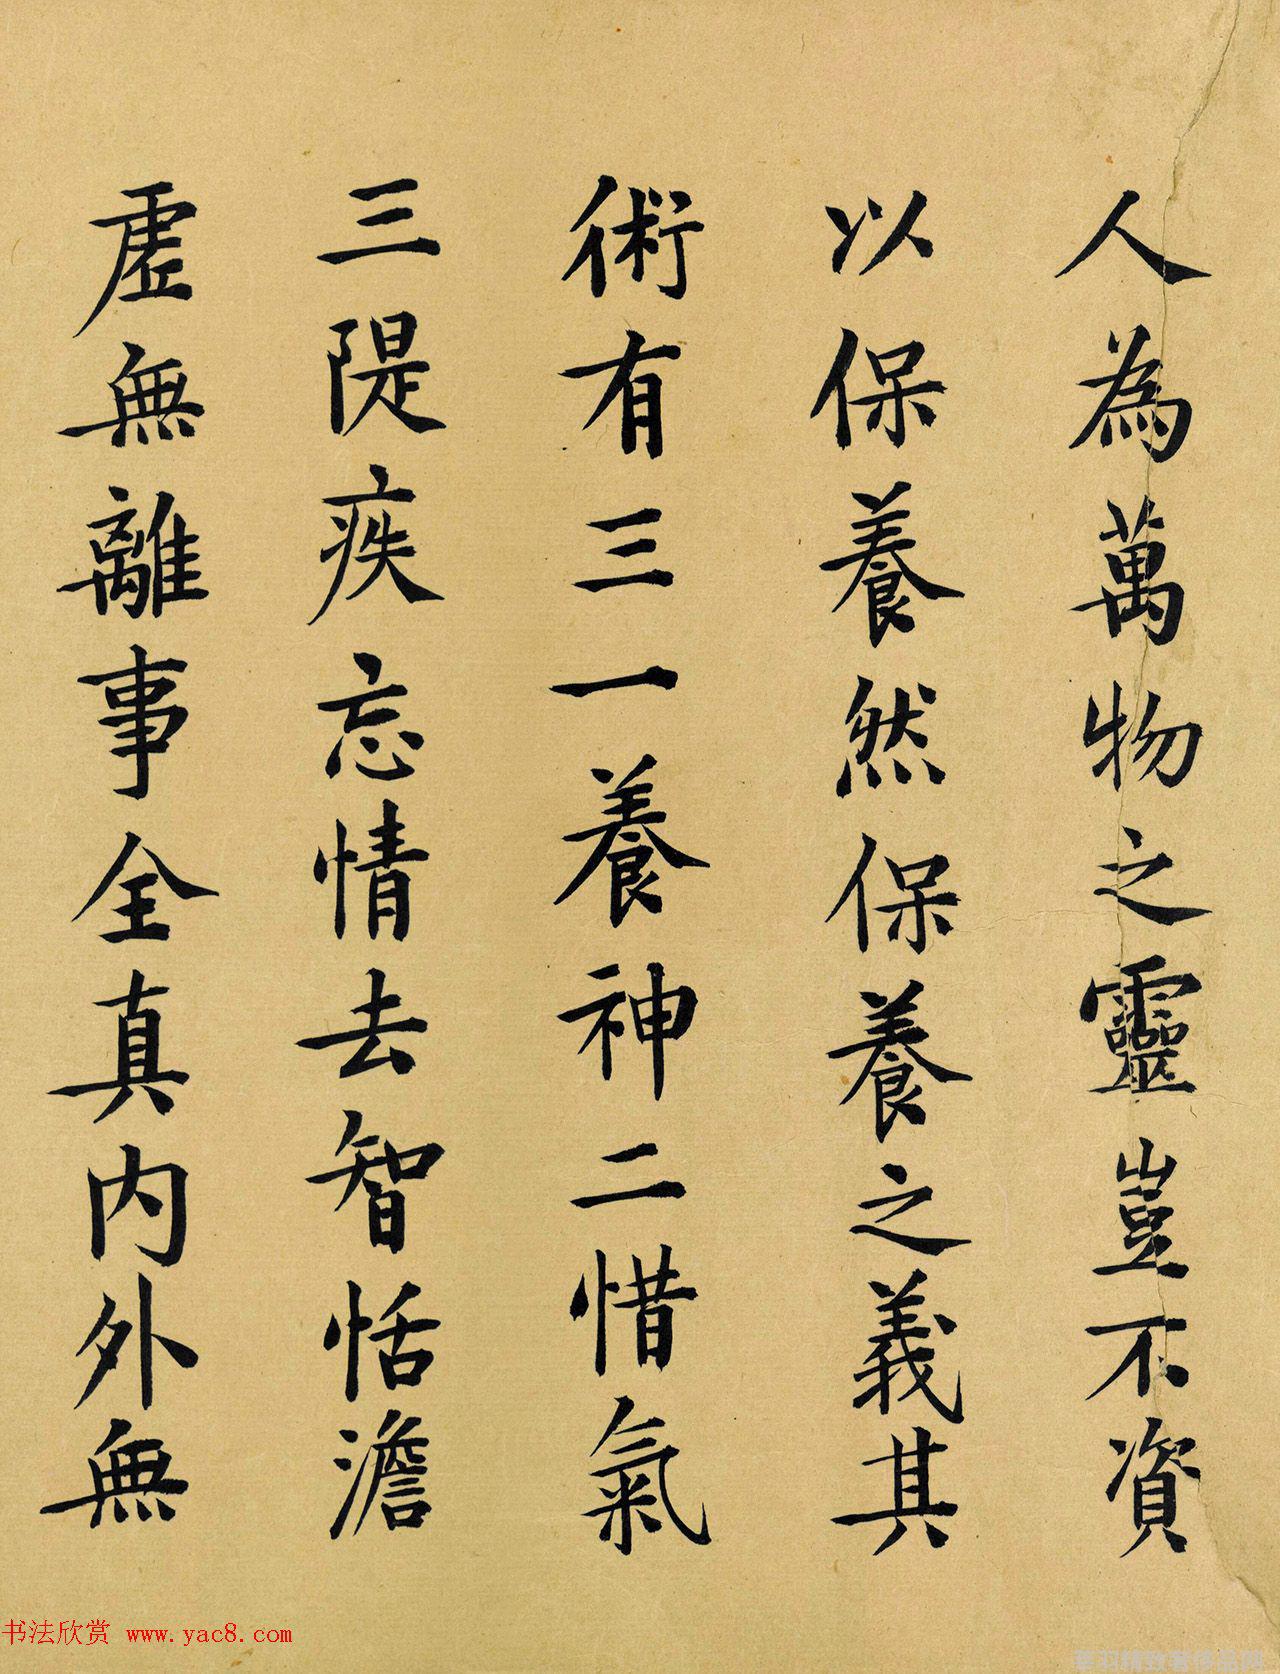 人為萬物之靈豈不資
以保養然保養之義其
術有三一養神二惜氣
三隄疾忘情去智恬澹
虛無離事全真内外無
书法欣赏 www.yac8.com